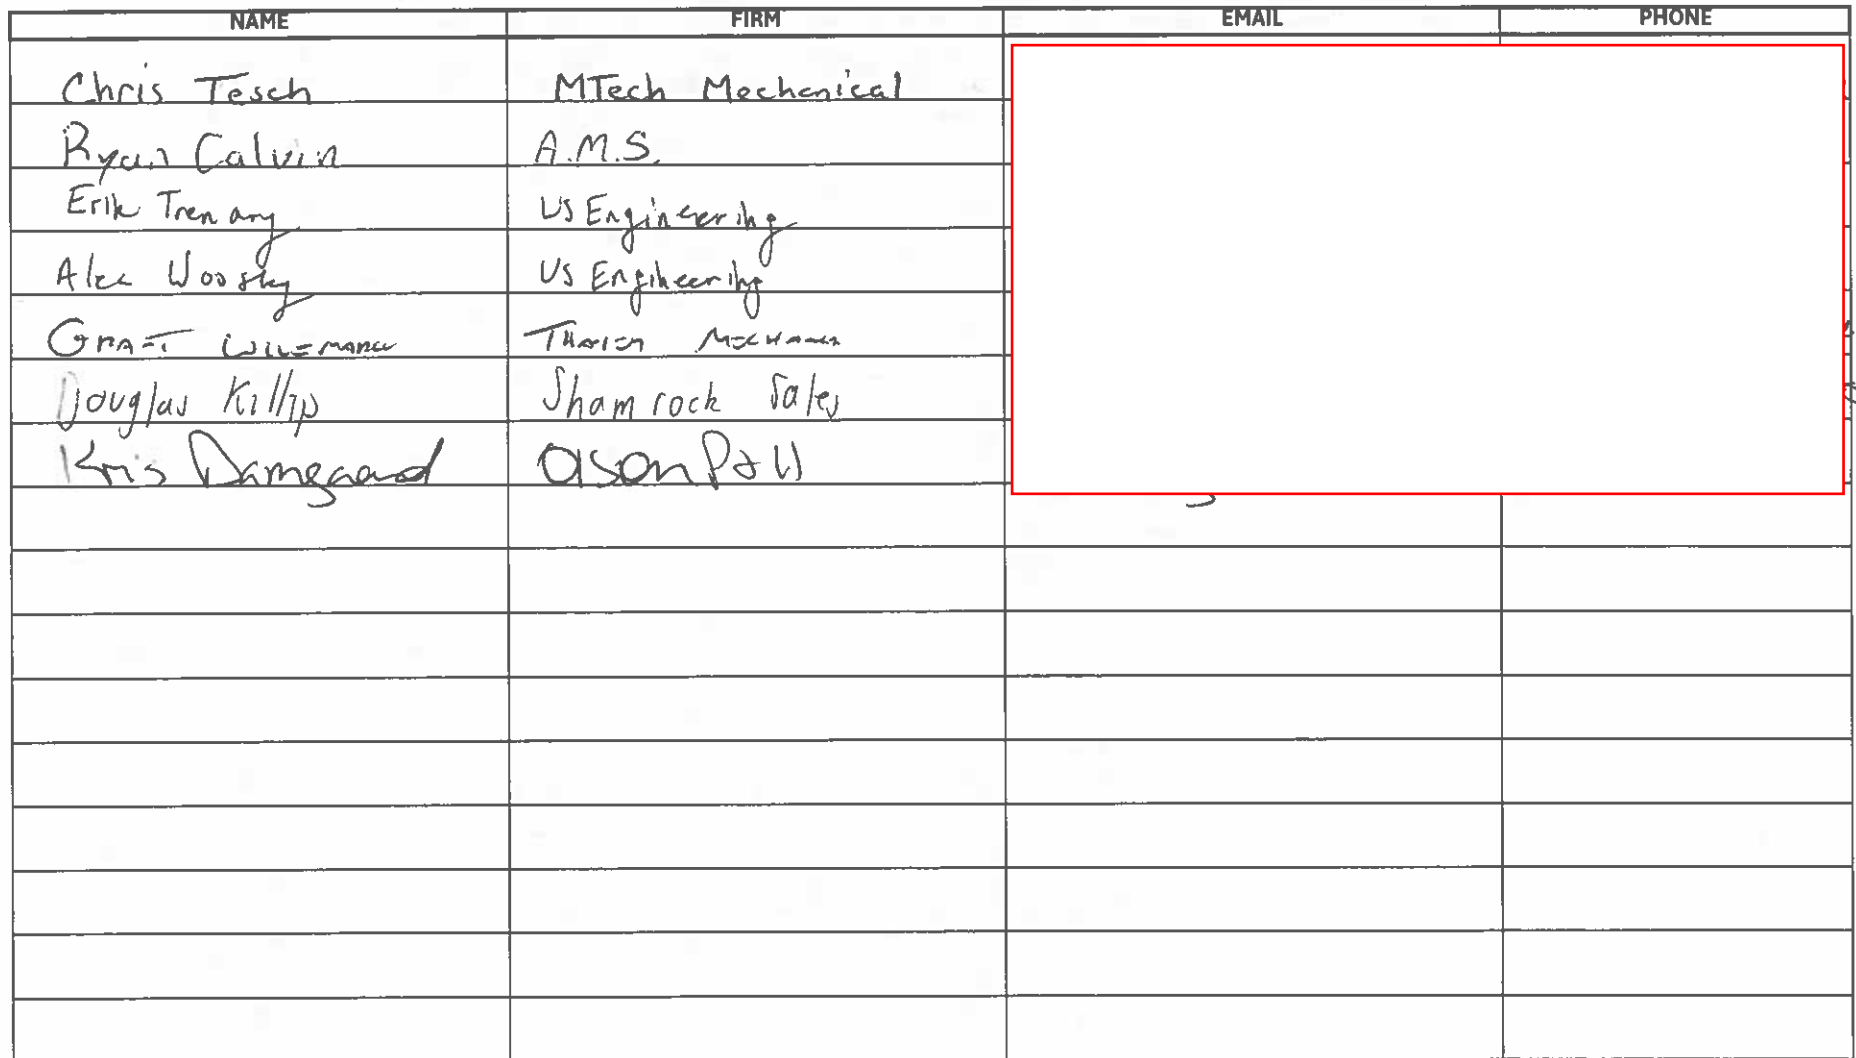 NAME FIRM EMAIL PHONE
Chris Tesch MTech Mechanical
Ryan Calvin A.M.S.
Erik Trenary US Engineering
Alec Woosley US Engineering
Douglas Killip Shamrock Sales
Kris Damgaard Olson P&H